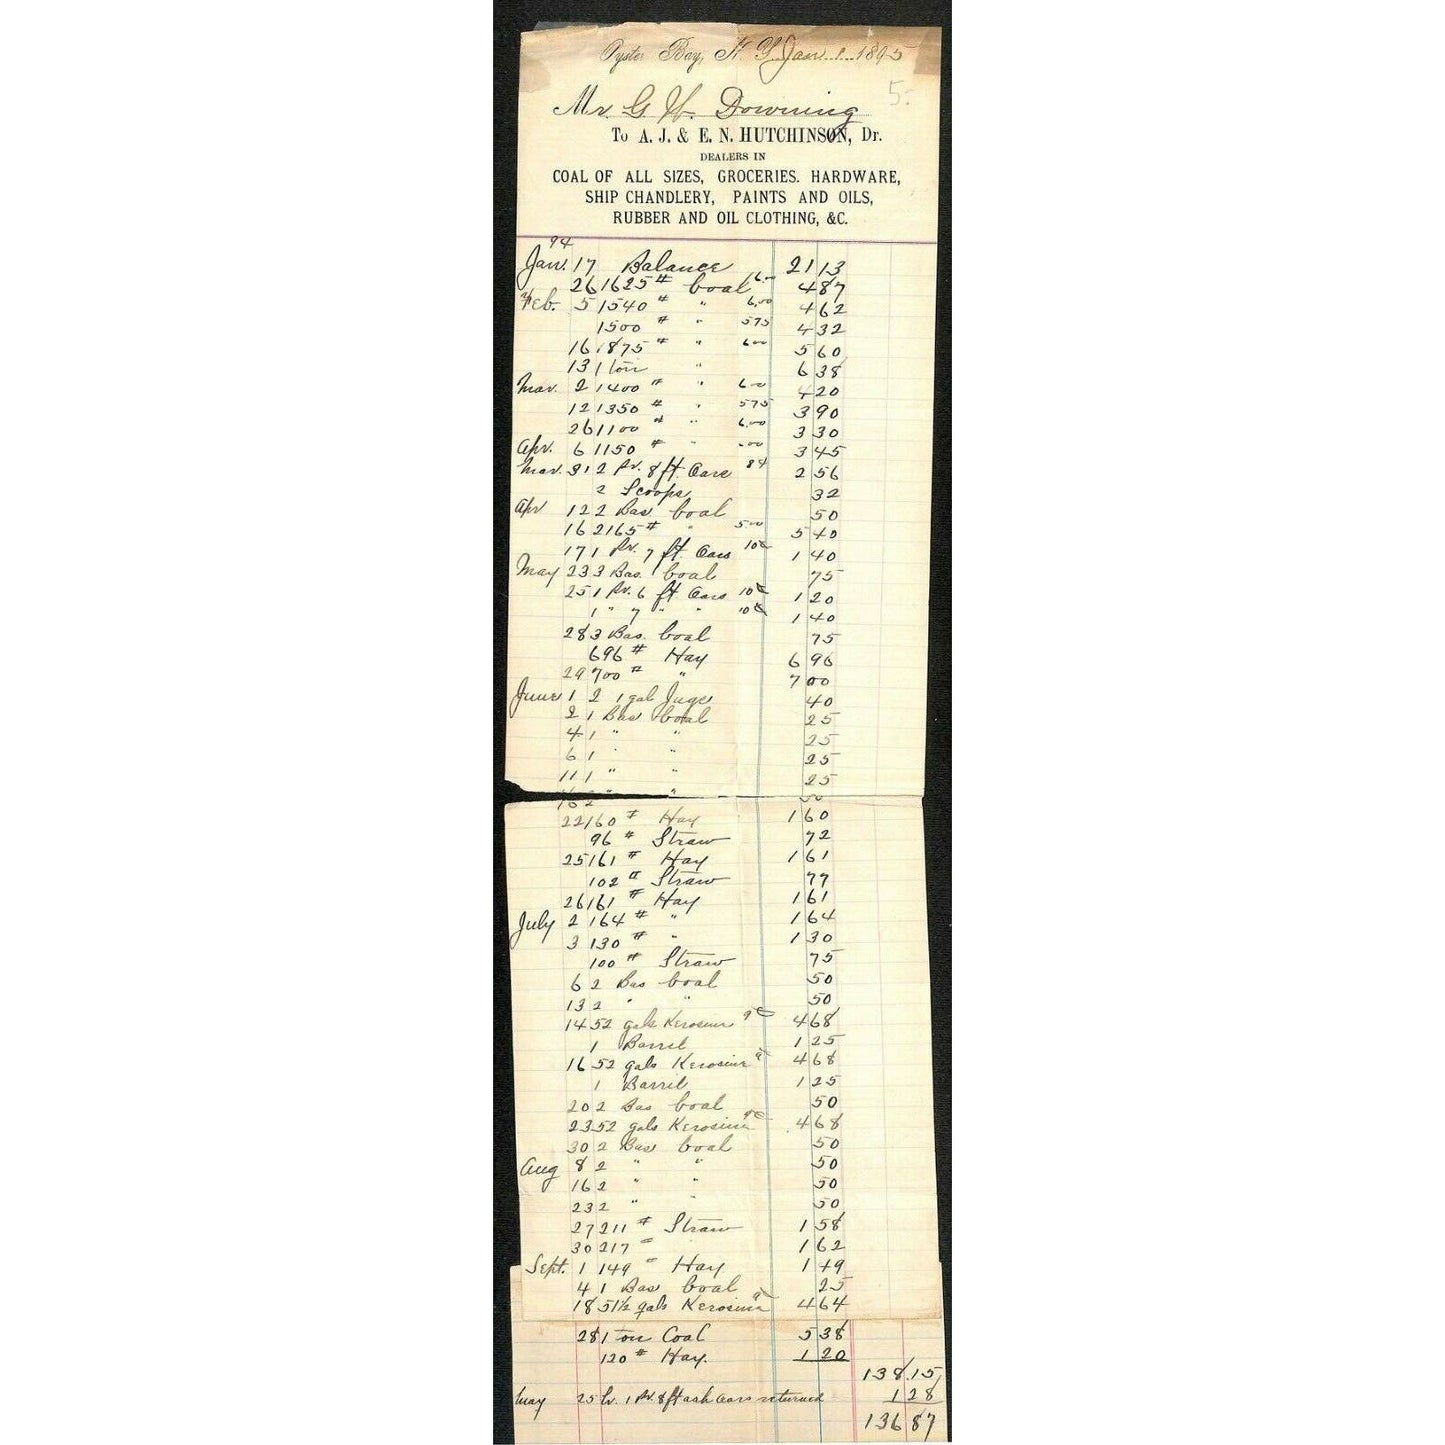 Oyster Bay, N. Y. Jan. 1. 1895
5-
Mr. G. W. Downing
To A. J. & E. N. HUTCHINSON, Dr.
DEALERS IN
COAL OF ALL SIZES, GROCERIES. HARDWARE,
SHIP CHANDLERY, PAINTS AND OILS,
RUBBER AND OIL CLOTHING, &C.
94
Jan. 17 Balance 21 13
26 1625 # Coal 6.00 4 87
Feb. 5 1540 # " 6.00 4 62
1500 # " 575 4 32
16 1875 # " 600 5 60
13 1 ton " 6 38
Mar. 2 1400 # " 6 00 4 20
12 1350 # " 575 3 90
26 1100 # " 6.00 3 30
Apr. 6 1150 # " 00 3 45
Mar. 31 2 Pr. 8 ft. Oars 84 2 56
2 Scoops 32
Apr 12 2 Bas. Coal 50
16 2165 # " 5 00 5 40
17 1 Pr. 7 ft. Oars 10c 1 40
May 23 3 Bas. Coal 75
25 1 Pr. 6 ft Oars 10c 1 20
1 " 7 " " 10c 1 40
28 3 Bas. Coal 75
696 # Hay 6 96
29 700 # " 7 00
June 1 2 1 gal Jugs 40
2 1 Bas Coal 25
4 1 " " 25
6 1 " " 25
11 1 " " 25
16 2 " " 50
22 160 # Hay 1 60
96 # Straw 72
25 161 # Hay 1 61
102 # Straw 77
26 161 # Hay 1 61
July 2 164 # " 1 64
3 130 # " 1 30
100 # Straw 75
6 2 Bas Coal 50
13 2 " " 50
14 52 gals Kerosine 9c 4 68
1 Barrel 1 25
16 52 gals Kerosine 9c 4 68
1 Barrel 1 25
20 2 Bas Coal 50
23 52 gals Kerosine 9c 4 68
30 2 Bas Coal 50
Aug 8 2 " " 50
16 2 " " 50
23 2 " " 50
27 211 # Straw 1 58
30 217 " 1 62
Sept. 1 149 " Hay 1 49
4 1 Bas Coal 25
18 51½ gals Kerosine 9 4 64
28 1 ton Coal 5 38
120 # Hay. 1 20
138.15
May 25 Cr. 1 Pr. 8 ft ash Oars returned 1 28
136 87